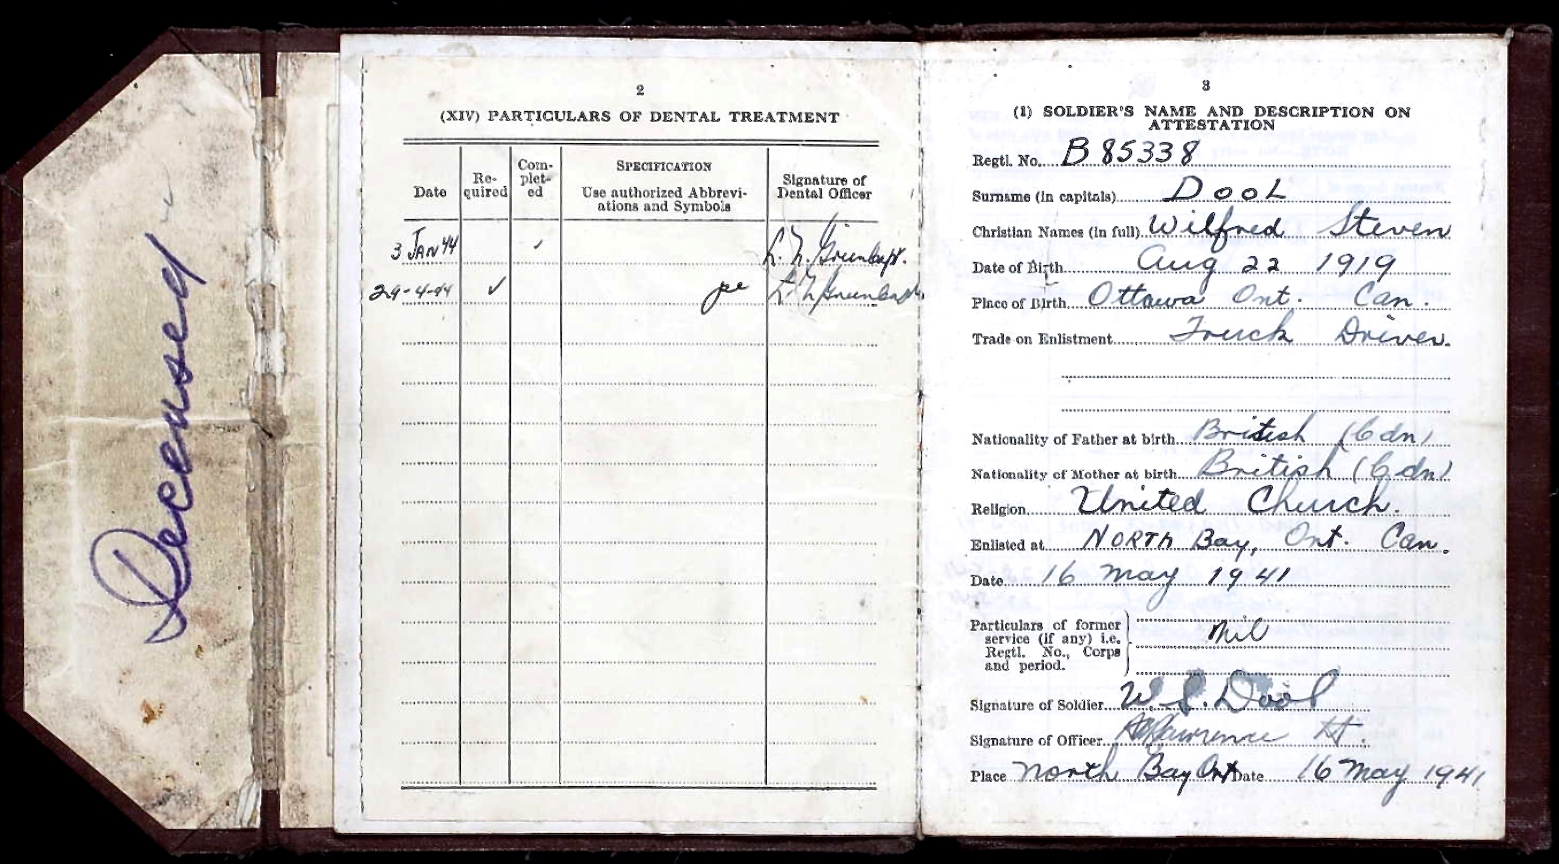 Deceased
2
(XIV) PARTICULARS OF DENTAL TREATMENT
Date
Re-
quired
Com-
plet-
ed
SPECIFICATION
Use authorized Abbrevi-
ations and Symbols
Signature of
Dental Officer
3 JAN 44
29-4-44 ✓
3
(1) SOLDIER'S NAME AND DESCRIPTION ON
ATTESTATION
Regtl. No. B 85338
Surname (in capitals) DOOL
Christian Names (in full) Wilfred Steven
Date of Birth Aug 22 1919
Place of Birth Ottawa Ont. Can.
Trade on Enlistment Truck Driver.
Nationality of Father at birth British (Cdn)
Nationality of Mother at birth British (Cdn)
Religion United Church.
Enlisted at NORTH Bay, Ont. Can.
Date 16 May 1941
Particulars of former
service (if any) i.e.
Regtl. No., Corps
and period.
nil
Signature of Soldier W. S. Dool
Signature of Officer Lawrence Lt.
Place North Bay Ont Date 16 May 1941